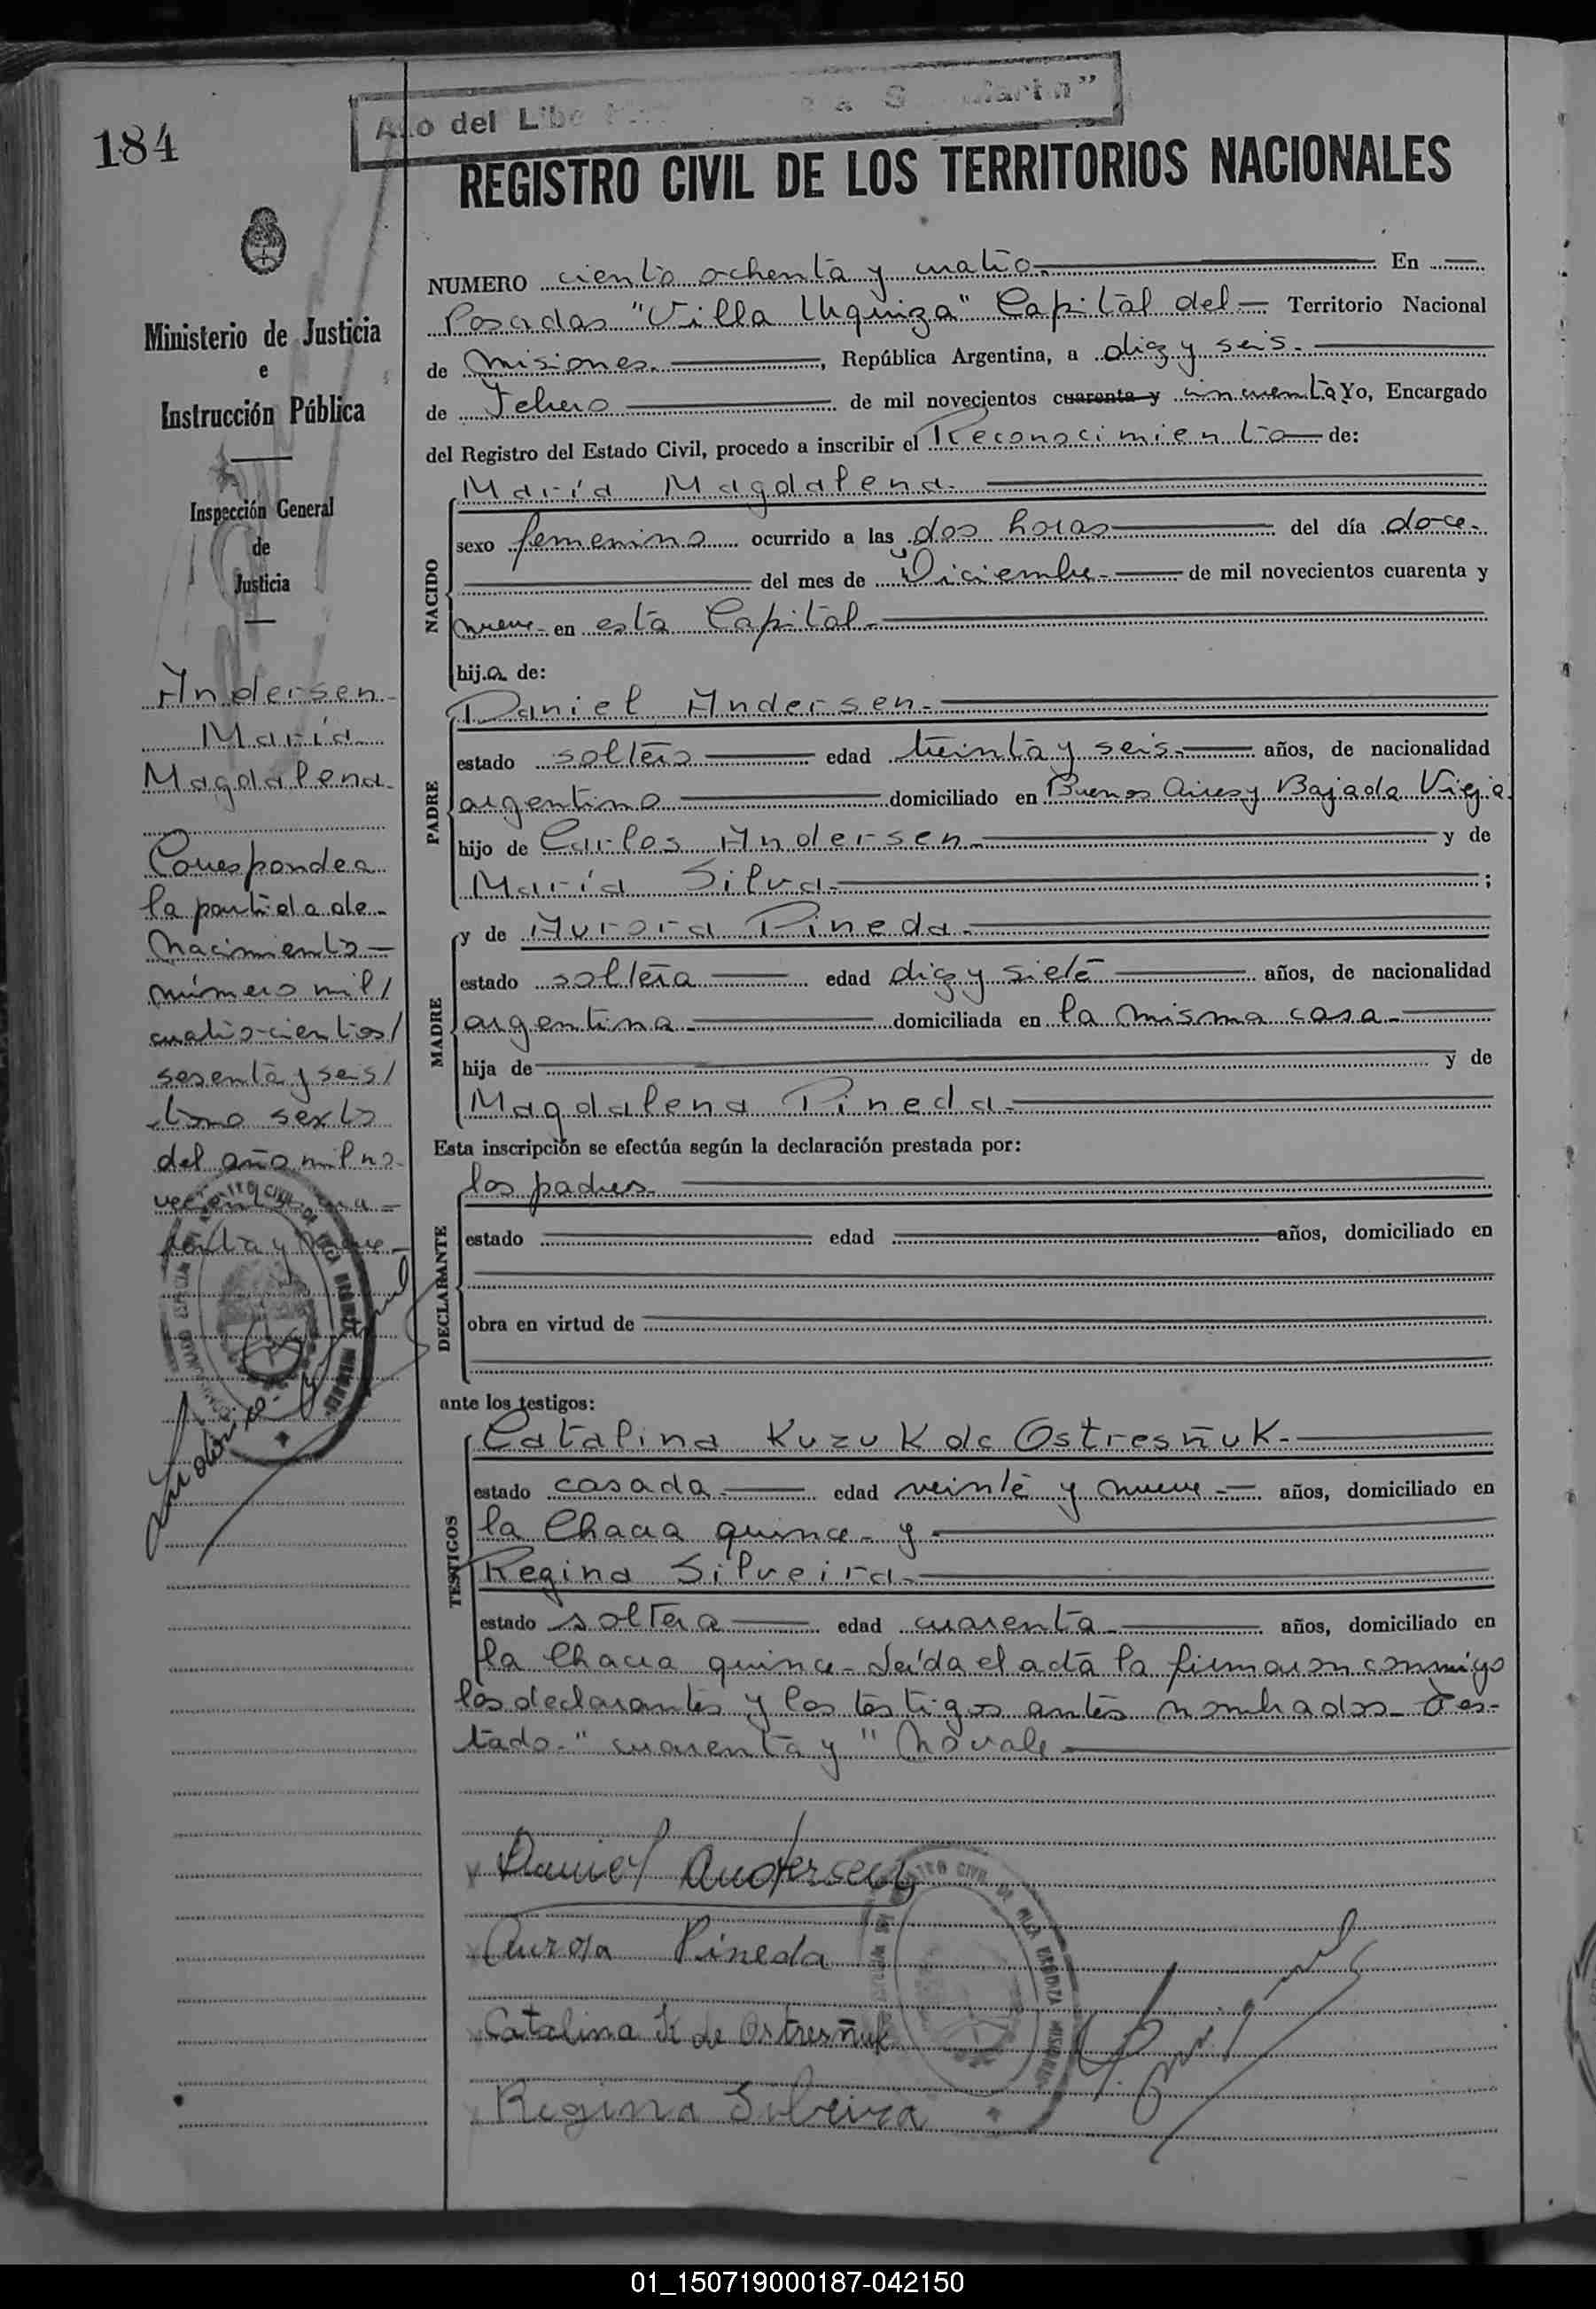 184
Año del Libe
REGISTRO CIVIL DE LOS TERRITORIOS NACIONALES
Ministerio de Justicia
e
Instrucción Pública
Inspección General
de
Justicia
Andersen
María
Magdalena
Corresponde a
la partida de
Nacimiento
número mil
cuatrocientos
sesenta y seis
tomo sexto
del año mil no-
NUMERO ciento ochenta y cuatro En
Posadas "Villa Urquiza" Capital del Territorio Nacional
de Misiones, República Argentina, a diez y seis
de Febrero de mil novecientos cuarenta y cincuenta Yo, Encargado
del Registro del Estado Civil, procedo a inscribir el Reconocimiento de:
NACIDO
María Magdalena
sexo femenino ocurrido a las dos horas del día doce
del mes de Diciembre de mil novecientos cuarenta y
nueve en esta Capital
hija de:
PADRE
Daniel Andersen
estado soltero edad treinta y seis años, de nacionalidad
argentino domiciliado en Buenos Aires y Bajada Vieja
hijo de Carlos Andersen y de
María Silva;
MADRE
y de Aurora Pineda
estado soltera edad diez y siete años, de nacionalidad
argentina domiciliada en la misma casa
hija de y de
Magdalena Pineda
Esta inscripción se efectúa según la declaración prestada por:
DECLARANTE
los padres
estado edad años, domiciliado en
obra en virtud de
ante los testigos:
TESTIGOS
Catalina Kuzuk de Ostresñuk
estado casada edad veinte y nueve años, domiciliado en
la Chacra quince y
Regina Silveira
estado soltera edad cuarenta años, domiciliado en
la Chacra quince Leída el acta la firmaron conmigo
los declarantes y los testigos antes nombrados Tes-
tado "cuarenta y" No vale
Daniel Andersen
Aurora Pineda
Catalina K de Ostresñuk
Regina Silveira
01_150719000187-042150